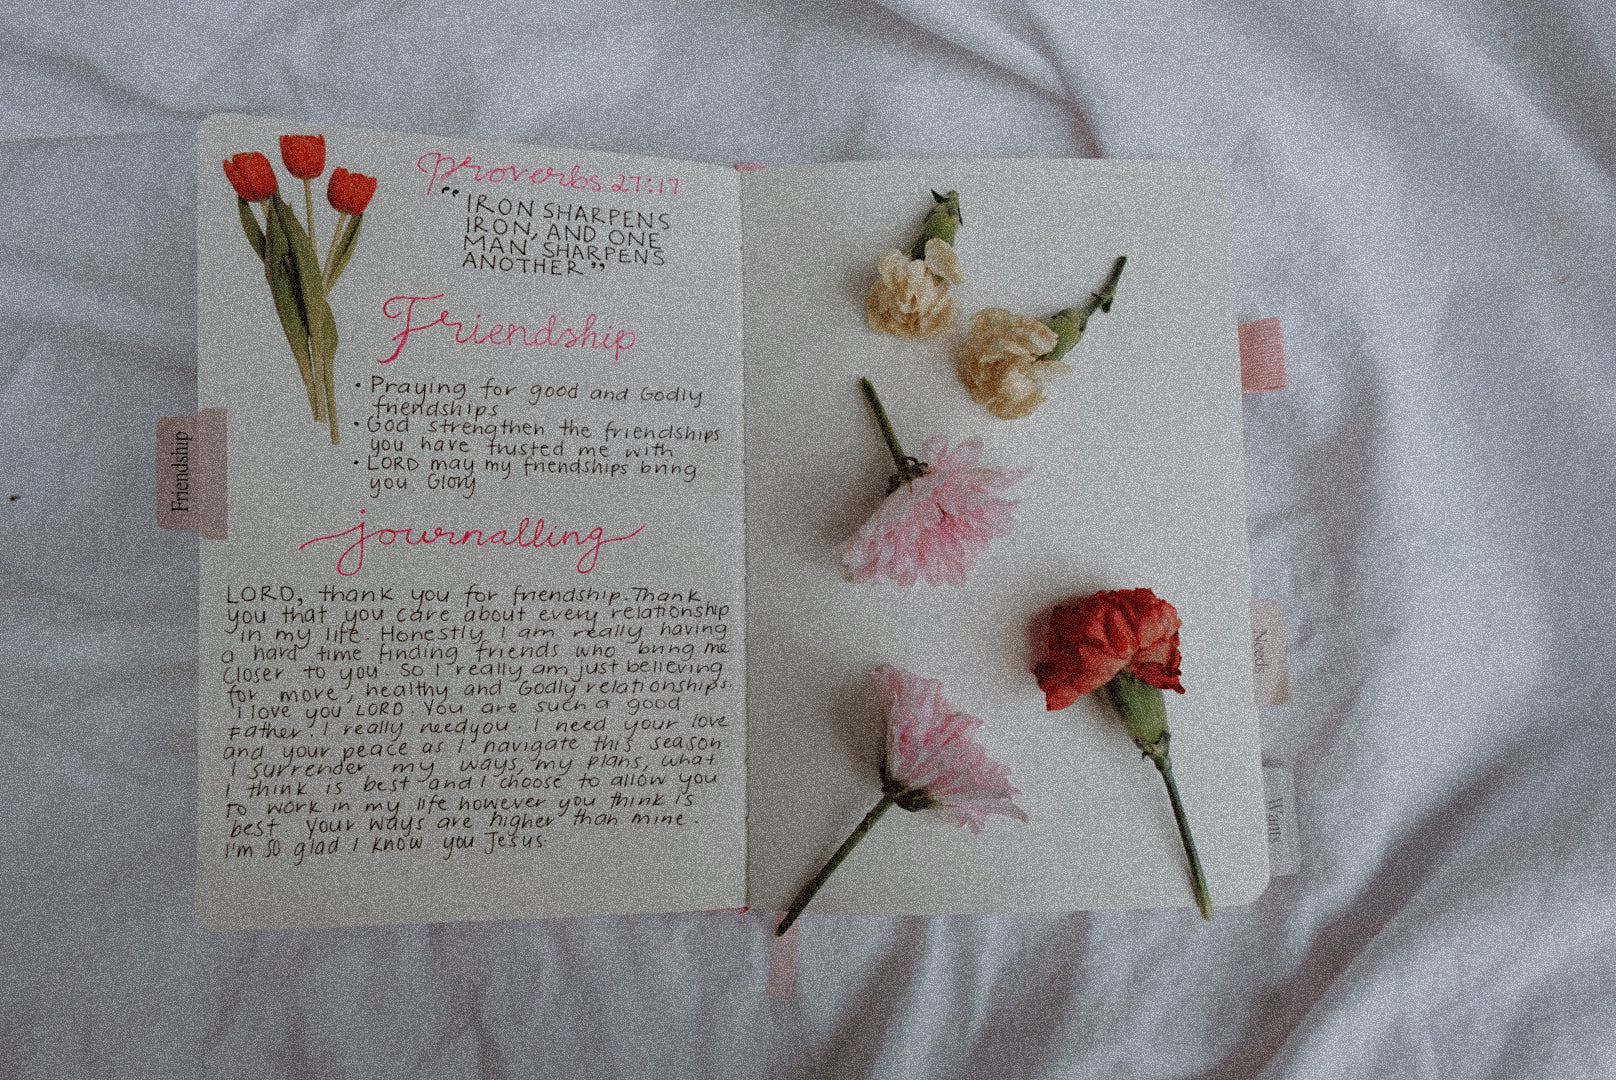 Proverbs 27:17
"IRON SHARPENS
IRON, AND ONE
MAN SHARPENS
ANOTHER"
Friendship
• Praying for good and Godly
friendships
• God strengthen the friendships
you have trusted me with
• LORD may my friendships bring
you Glory
Friendship
journalling
LORD, thank you for friendship. Thank
you that you care about every relationship
in my life. Honestly I am really having
a hard time finding friends who bring me
closer to you. So I really am just believing
for more, healthy and Godly relationships.
I love you LORD. You are such a good
Father. I really need you. I need your love
and your peace as I navigate this season.
I surrender my ways, my plans, what
I think is best and I choose to allow you
to work in my life however you think is
best. Your ways are higher than mine.
I'm so glad I know you Jesus.
Needs
Wants